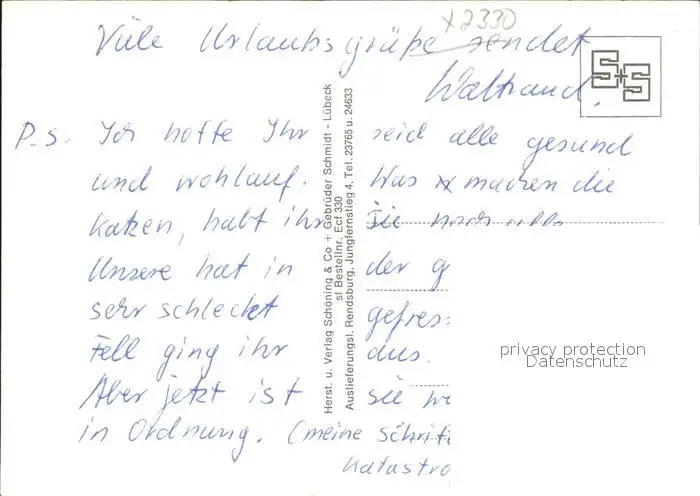 x2330
Viele Urlaubsgrüße sendet
Waltraud.
P.S. Ich hoffe Ihr seid alle gesund
und wohlauf. Was machen die
Katzen, habt ihr sie noch alle
Unsere hat in der g
sehr schlecht gefres
Fell ging ihr aus.
Aber jetzt ist sie w
in Ordnung. (meine Schrift
Katastro
Herst. u. Verlag Schöning & Co + Gebrüder Schmidt - Lübeck
sl Bestellnr. Ecf 330
Auslieferungsl. Rendsburg, Jungfernstieg 4, Tel. 23765 u. 24633
S+S
privacy protection
Datenschutz